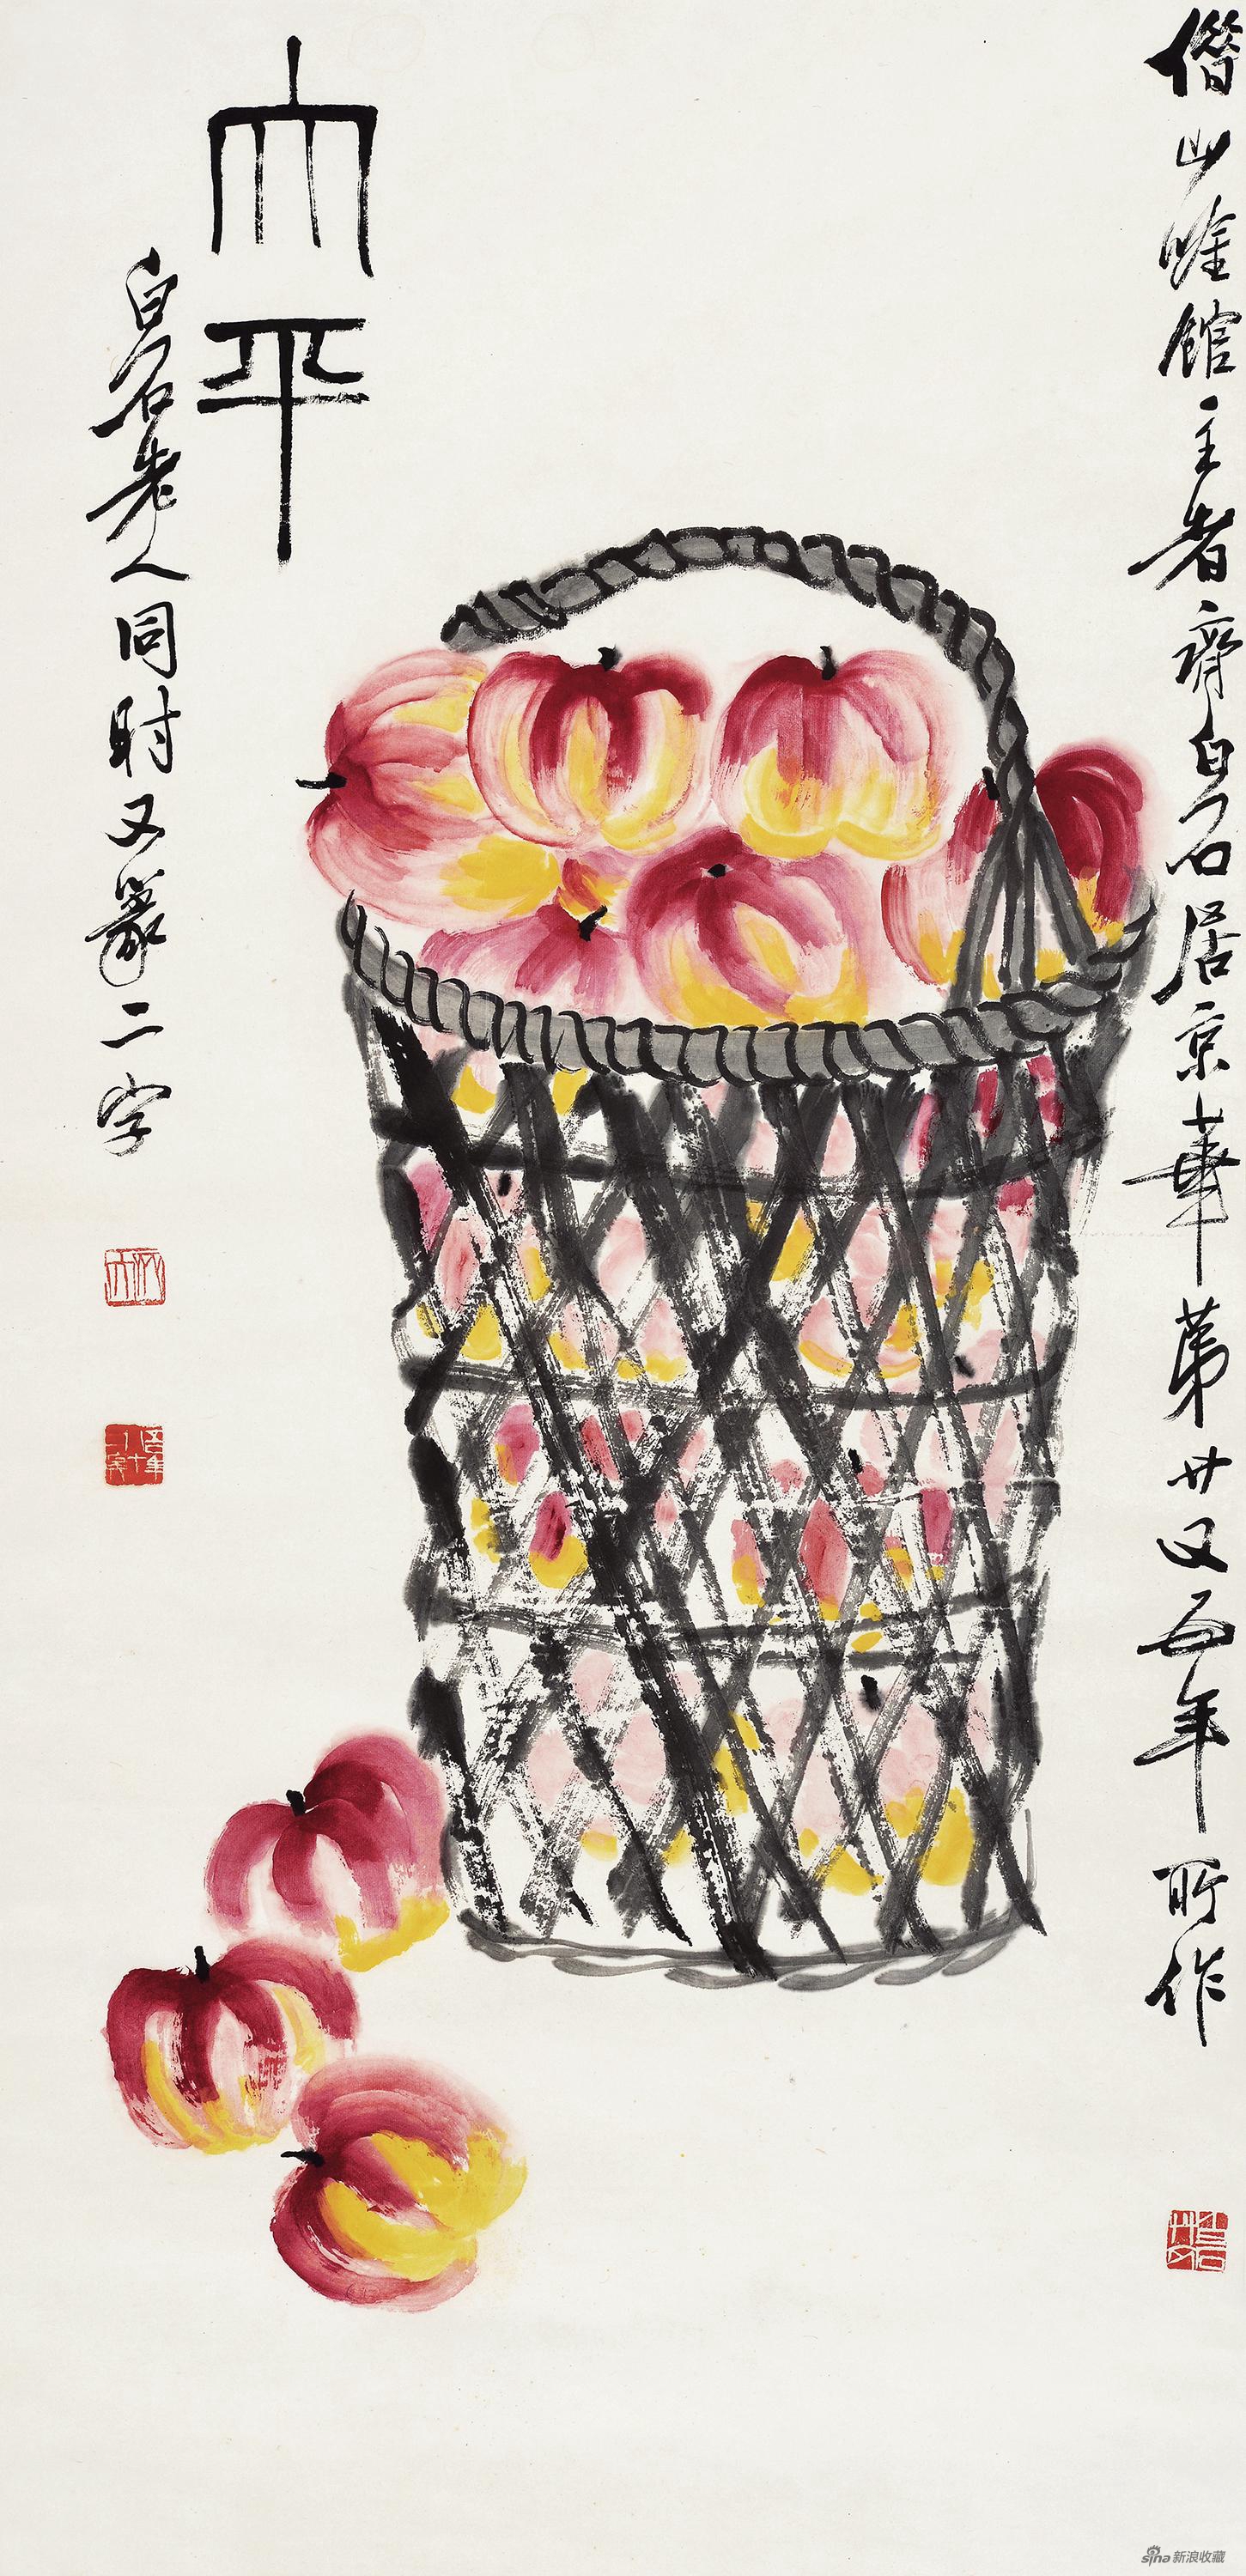 借山唫館主者齊白石居京華第廿又五年所作
大平
白石老人同时又篆二字
sina新浪收藏